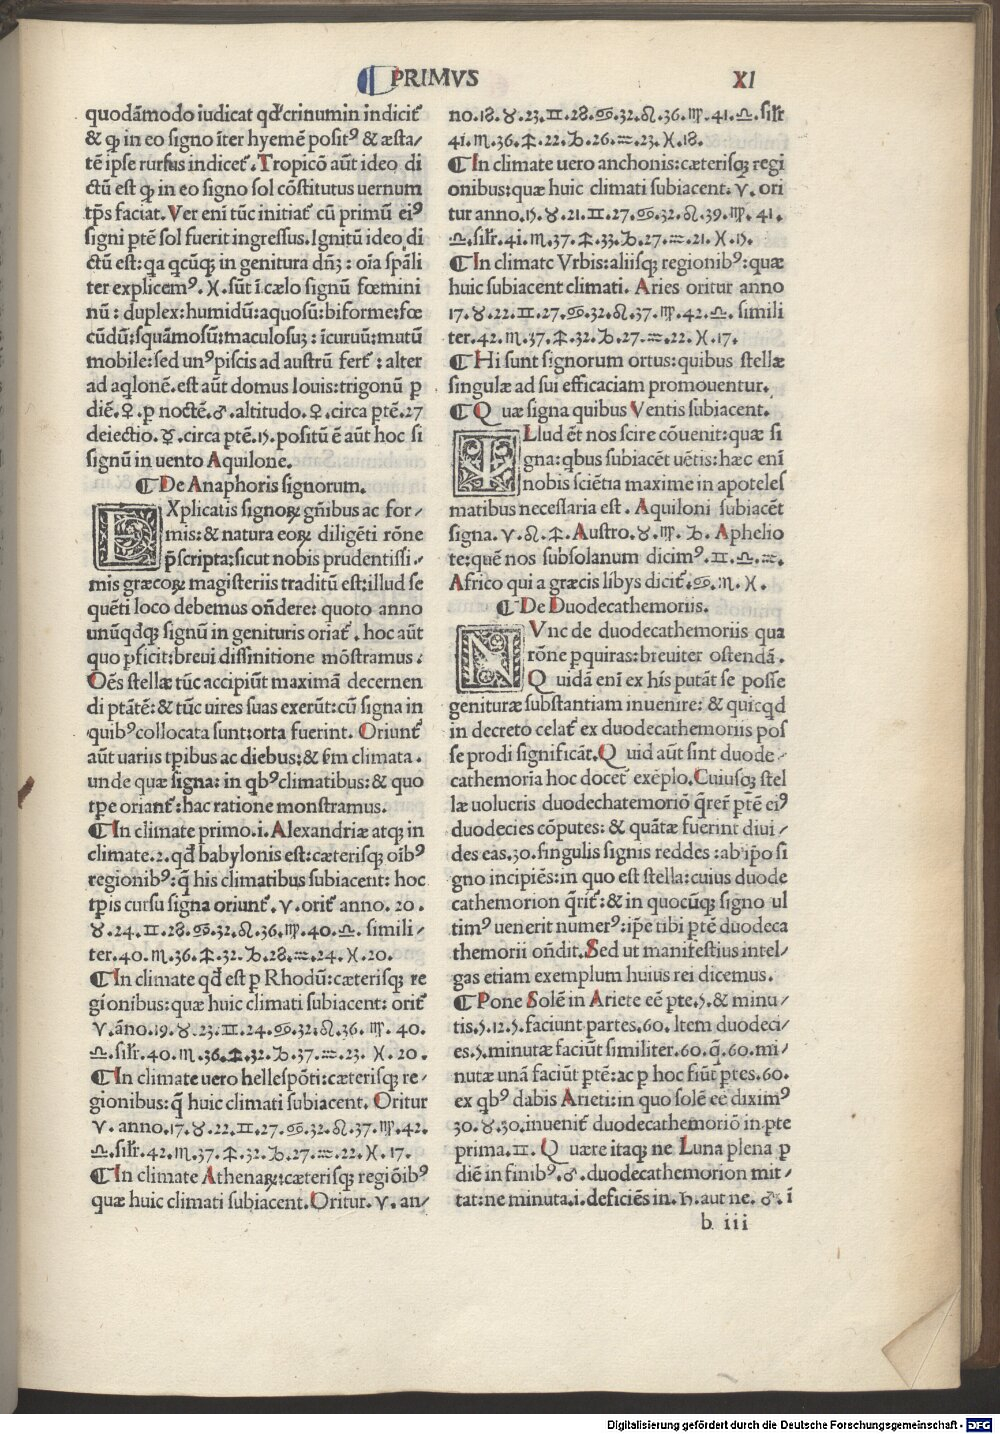 PRIMVS
XI
quodãmodo iudicat qd' crinumin indicit᷑
& ꝙ in eo signo iter hyemẽ posit⁹ & æsta/
tẽ ipse rursus indicet᷑. Tropicõ aũt ideo di
ctũ est ꝙ in eo signo sol cõstitutus uernum
tp̃s faciat. Ver enĩ tũc initiat᷑ cũ primũ ei⁹
signi ptẽ sol fuerit ingressus. Ignitũ ideo di
ctũ est: qa qcũqꝫ in genitura dñꝫ: oĩa spãli
ter explicem⁹. ♓. sũt ĩ cælo signũ fœmini
nũ: duplex: humidũ: aquosũ: biforme: fœ
cũdũ: squãmosũ: maculosuꝫ: ĩcuruũ: mutũ
mobile: sed un⁹ piscis ad austrũ fert᷑: alter
ad aqlonẽ. est aũt domus Iouis: trigonũ p
diẽ. ♀. p noctẽ. ♂. altitudo. ♀. circa ptẽ. 27
deiectio. ☿. circa ptẽ. 15. positũ ẽ aũt hoc si
signũ in uento Aquilone.
¶ De Anaphoris signorum.
EXplicatis signoꝝ gñibus ac for/
mis: & natura eoꝝ diligẽti rõne
p̃scripta: sicut nobis prudentissi/
mis græcoꝝ magisteriis traditũ est: illud se
quẽti loco debemus oñdere: quoto anno
unũqdqꝫ signũ in genituris oriat᷑. hoc aũt
quo pficit: breui diffinitione mõstramus:
Oẽs stellæ tũc accipiũt maximã decernen
di ptãtẽ: & tũc uires suas exerũt: cũ signa in
quib⁹ collocata sunt: orta fuerint. Oriunt᷑
aũt uariis tp̃ibus ac diebus: & s̃m climata.
unde quæ signa: in qb⁹ climatibus: & quo
tp̃e oriant᷑: hac ratione monstramus.
¶ In climate primo. i. Alexandriæ atqꝫ in
climate. 2. qd' babylonis est: cæterisqꝫ oĩb⁹
regionib⁹: q̃ his climatibus subiacent: hoc
tp̃is cursu signa oriunt᷑. ♈. orit᷑ anno. 20.
♉. 24. ♊. 28. ♋. 32. ♌. 36. ♍. 40. ♎. simili/
ter. 40. ♏. 36. ♐. 32. ♑. 28. ♒. 24. ♓. 20.
¶ In climate qd' est p Rhodũ: cæterisqꝫ re
gionibus: quæ huic climati subiacent: orit᷑
♈. ãno. 19. ♉. 23. ♊. 24. ♋. 32. ♌. 36. ♍. 40.
♎. sil'r. 40. ♏. 36. ♐. 32. ♑. 37. ♒. 23. ♓. 20.
¶ In climate uero hellespõti: cæterisqꝫ re/
gionibus: q̃ huic climati subiacent. Oritur
♈. anno. 17. ♉. 22. ♊. 27. ♋. 32. ♌. 37. ♍. 42.
♎. sil'r. 42. ♏. 37. ♐. 32. ♑. 27. ♒. 22. ♓. 17.
¶ In climate Athenaꝝ: cæterisqꝫ regiõib⁹
quæ huic climati subiacent. Oritur. ♈. an/
no. 18. ♉. 23. ♊. 28. ♋. 32. ♌. 36. ♍. 41. ♎. sil'r
41. ♏. 36. ♐. 22. ♑. 26. ♒. 23. ♓. 18.
¶ In climate uero anchonis: cæterisqꝫ regi
onibus: quæ huic climati subiacent. ♈. ori
tur anno. 15. ♉. 21. ♊. 27. ♋. 32. ♌. 39. ♍. 41.
♎. sil'r. 41. ♏. 37. ♐. 33. ♑. 27. ♒. 21. ♓. 15.
¶ In climate Vrbis: aliisqꝫ regionib⁹: quæ
huic subiacent climati. Aries oritur anno
17. ♉. 22. ♊. 27. ♋. 32. ♌. 37. ♍. 42. ♎. simili
ter. 42. ♏. 37. ♐. 32. ♑. 27. ♒. 22. ♓. 17.
¶ Hi sunt signorum ortus: quibus stellæ
singulæ ad sui efficaciam promouentur.
¶ Quæ signa quibus Ventis subiacent.
ILlud ẽt nos scire cõuenit: quæ si
gna: qbus subiacẽt uẽtis: hæc enĩ
nobis sciẽtia maxime in apoteles
matibus necessaria est. Aquiloni subiacẽt
signa. ♈. ♌. ♐. Austro. ♉. ♍. ♑. Aphelio
te: quẽ nos subsolanum dicim⁹. ♊. ♎. ♒.
Africo qui a græcis libys dicit᷑. ♋. ♏. ♓.
¶ De Duodecathemoriis.
NVnc de duodecathemoriis qua
rõne pquiras: breuiter ostendã.
Quidã enĩ ex his putãt se posse
genituræ substantiam inuenire: & quicqd
in decreto celat᷑ ex duodecathemoriis pos
se prodi significãt. Quid aũt sint duode/
cathemoria hoc docet᷑ exẽplo. Cuiusqꝫ stel
læ uolueris duodechatemoriõ q̃rer᷑ ptẽ ei⁹
duodecies cõputes: & quãtæ fuerint diui/
des eas. 30. singulis signis reddes: ab ip̃o si
gno incipiẽs: in quo est stella: cuius duode
cathemorion q̃rit᷑: & in quocũqꝫ signo ul
tim⁹ uenerit numer⁹: ip̃e tibi ptẽ duodeca
themorii oñdit. Sed ut manifestius intel/
gas etiam exemplum huius rei dicemus.
¶ Pone Solẽ in Ariete eẽ pte. 5. & minu/
tis. 5. 12. 5. faciunt partes. 60. Item duodeci/
es. 5. minutæ faciũt similiter. 60. q̃. 60. mi/
nutæ unã faciũt ptẽ: ac p hoc fiũt ptes. 60.
ex qb⁹ dabis Arieti: in quo solẽ eẽ dixim⁹
30. ♉. 30. inuenit᷑ duodecathemoriõ in pte
prima. ♊. Quære itaqꝫ ne Luna plena p
diẽ in finib⁹. ♂. duodecathemorion mit/
tat: ne minuta. i. deficiẽs in. ♄. aut ne. ♂. ĩ
b iii
Digitalisierung gefördert durch die Deutsche Forschungsgemeinschaft - DFG